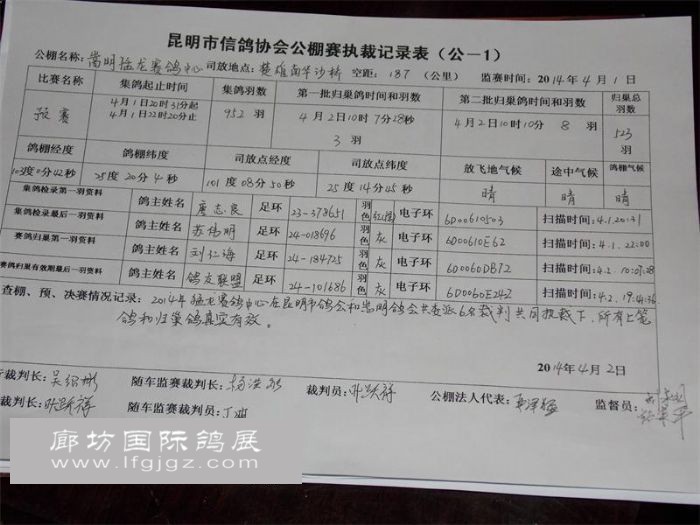 昆明市信鸽协会公棚赛执裁记录表（公—1）
公棚名称：嵩明猛龙赛鸽中心 司放地点：楚雄南华沙桥 空距：187（公里） 监赛时间：2014年4月1日
比赛名称 集鸽起止时间 集鸽羽数 第一批归巢鸽时间和羽数 第二批归巢鸽时间和羽数 归巢总羽数
预赛 4月1日20时31分起 4月1日22时20分止 952羽 4月2日10时7分28秒 3羽 4月2日10时10分 8羽 523羽
鸽棚经度 鸽棚纬度 司放点经度 司放点纬度 放飞地气候 途中气候 鸽棚气候
103度0分42秒 25度20分4秒 101度08分50秒 25度14分45秒 晴 晴 晴
集鸽检录第一羽资料 鸽主姓名 唐志良 足环 23-378651 羽色 红楞 电子环 6D00610503 扫描时间：4.1.20:31
集鸽检录最后一羽资料 鸽主姓名 苏伟明 足环 24-018696 羽色 灰 电子环 6D000610E62 扫描时间：4.1.22:00
赛鸽归巢第一羽资料 鸽主姓名 刘仁海 足环 24-184725 羽色 灰 电子环 6D0060DB72 扫描时间：4.2.10:07:28
赛鸽归巢有效期最后一羽资料 鸽主姓名 鸽友联盟 足环 24-101686 羽色 灰 电子环 6D0060E242 扫描时间：4.2.19:41:36
查棚、预、决赛情况记录：2014年猛龙赛鸽中心在昆明市鸽会和嵩明鸽会共委派6名裁判共同执裁下，所有上笼
鸽和归巢鸽真实有效。
2014年4月2日
行裁判长：吴绍彬 随车监赛裁判长： 裁判员：叶跃祥 公棚法人代表： 监督员：
裁判长：叶跃祥 随车监赛裁判员：
廊坊国际鸽展
www.lfgjgz.com